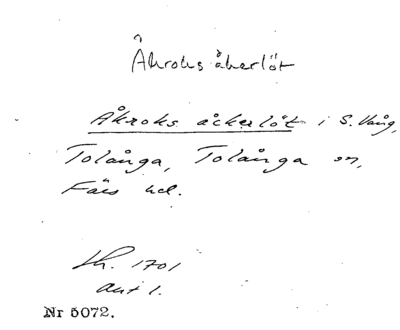 Åkroks åkerlöt
Åkroks åckerlöt i S. Vång,
Tolånga, Tolånga sn,
Färs hd.
Lh. 1701
akt 1.
Nr 5072.